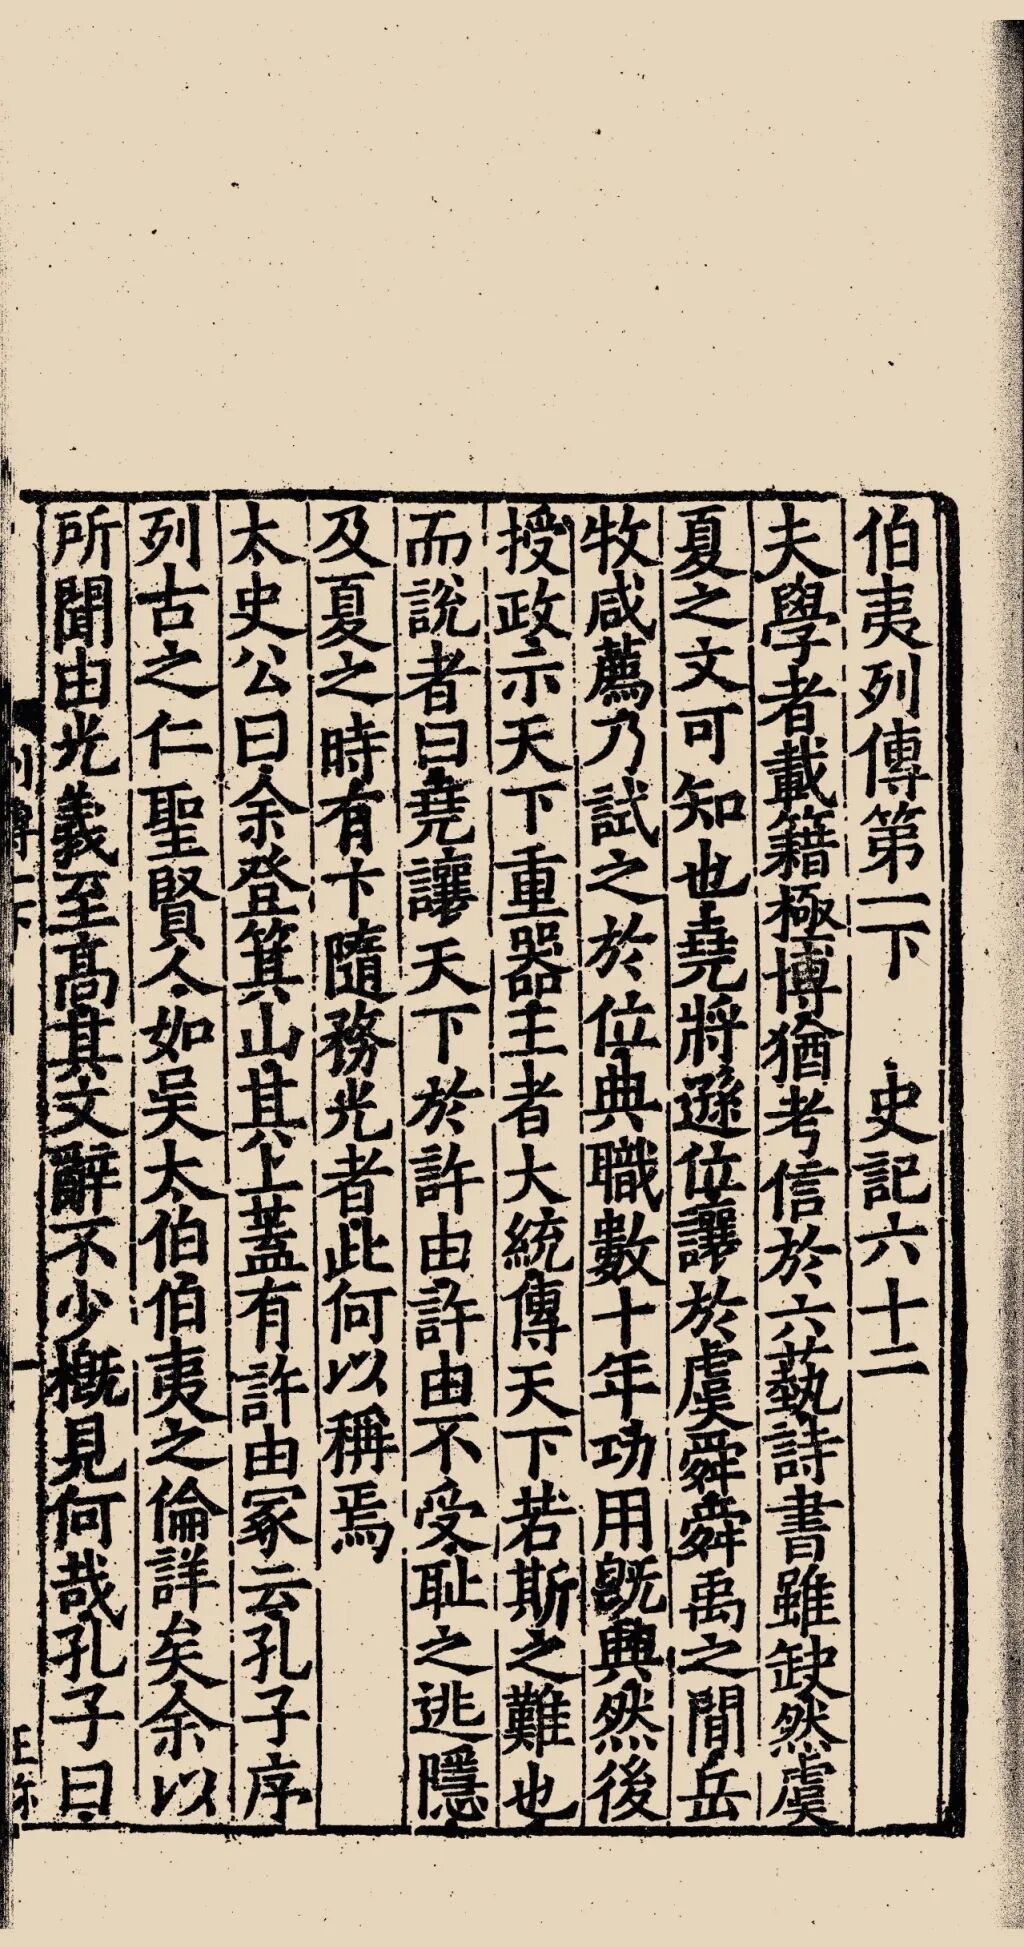 伯夷列傳第一下　史記六十二
夫學者載籍極博猶考信於六藝詩書雖缺然虞
夏之文可知也堯將遜位讓於虞舜舜禹之間岳
牧咸薦乃試之於位典職數十年功用旣興然後
授政示天下重器王者大統傳天下若斯之難也
而說者曰堯讓天下於許由許由不受耻之逃隱
及夏之時有卞隨務光者此何以稱焉
太史公曰余登箕山其上蓋有許由冢云孔子序
列古之仁聖賢人如吳太伯伯夷之倫詳矣余以
所聞由光義至髙其文辭不少槪見何哉孔子曰
列傳一下
一